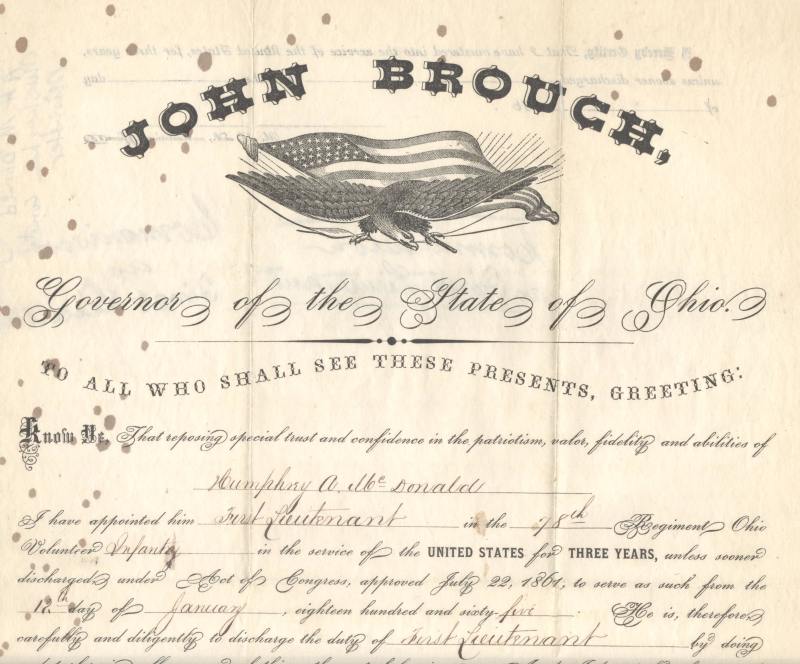 JOHN BROUGH,
Governor of the State of Ohio.
TO ALL WHO SHALL SEE THESE PRESENTS, GREETING:
Know Ye, That reposing special trust and confidence in the patriotism, valor, fidelity and abilities of
Humphrey A. Mc Donald
I have appointed him First Lieutenant in the 78th Regiment Ohio
Volunteer Infantry in the service of the UNITED STATES for THREE YEARS, unless sooner
discharged, under Act of Congress, approved July 22, 1861, to serve as such from the
12th day of January, eighteen hundred and sixty-five. He is, therefore,
carefully and diligently to discharge the duty of First Lieutenant by doing